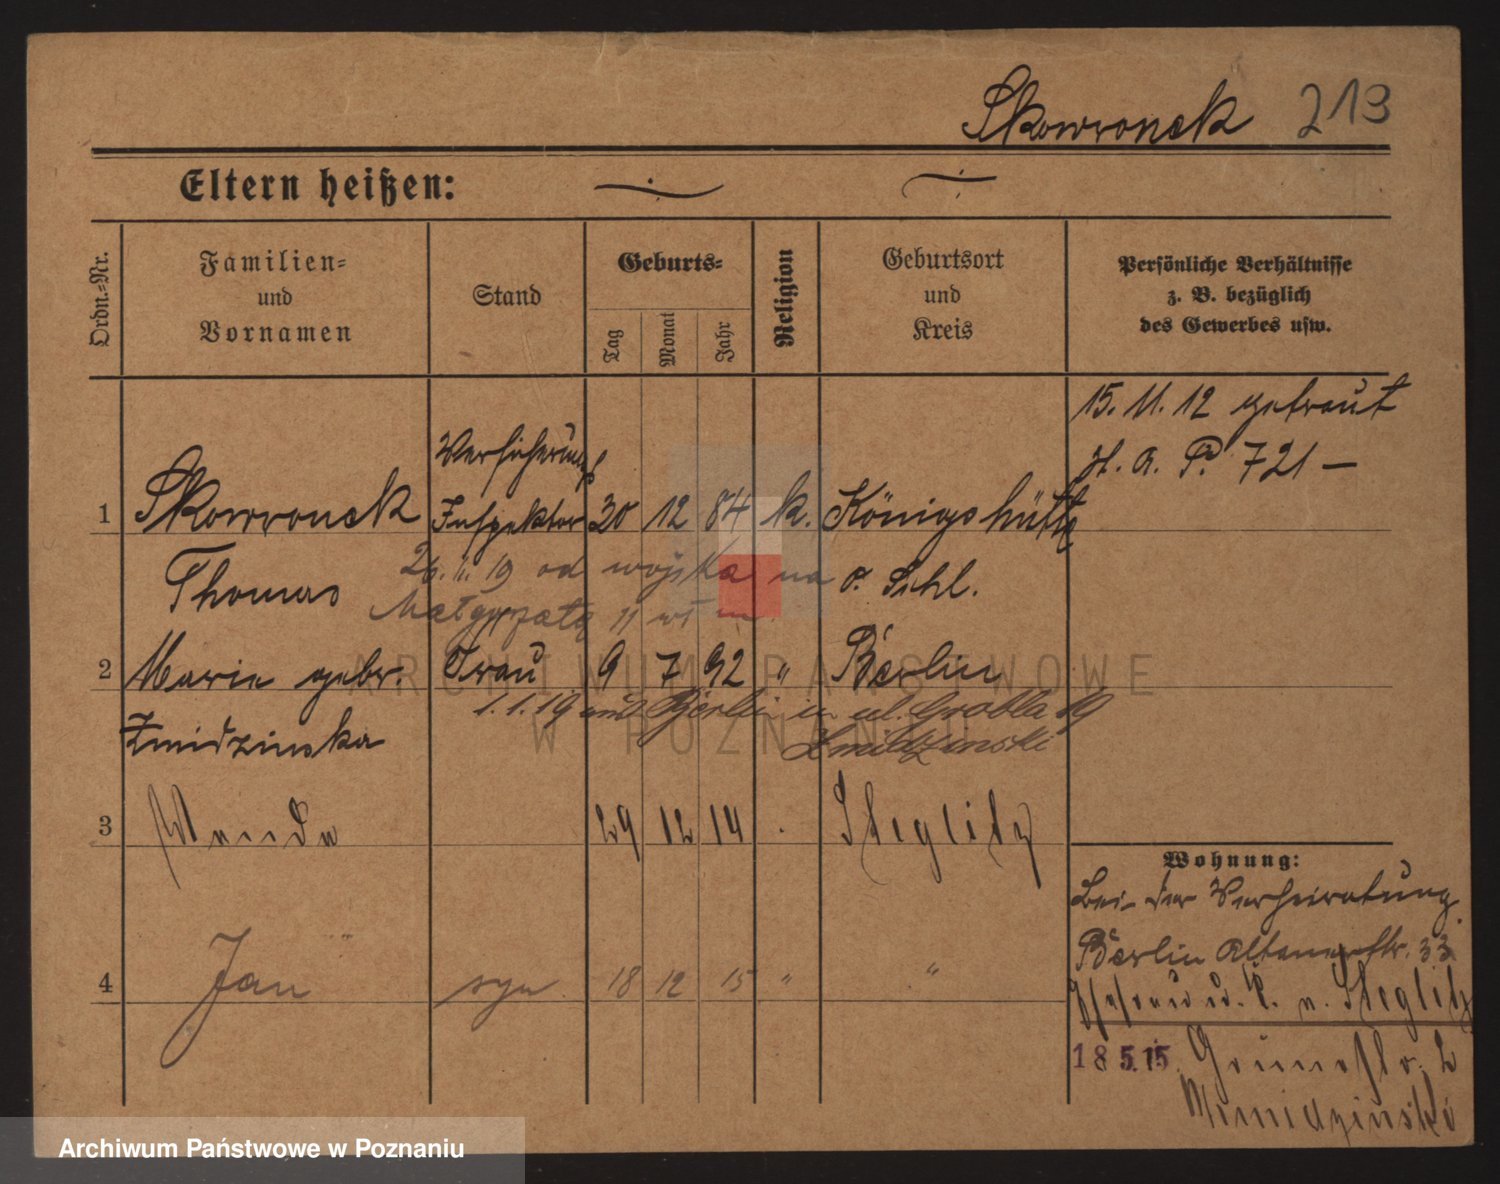 Skowronek 213
Eltern heißen:
Ordn.-Nr.
Familien-
und
Vornamen
Stand
Geburts-
Tag
Monat
Jahr
Religion
Geburtsort
und
Kreis
Persönliche Verhältnisse
z. B. bezüglich
des Gewerbes usw.
15. 11. 12 getraut
H. A. P. 721 —
Versicherungs
1 Skowronek Inspektor 30 12 84 k. Königshütte
Thomas O. Schl.
26. 11. 19 od wojska na
Małgorzatę 11
2 Marie gebr. Frau 9 7 92 " Berlin
Zmidzinska
1. 1. 19 aus Berlin ul. Grobla 19
Zmidzinski
3 Wanda 29 12 14 Steglitz
4 Jan syn 18 12 15 " "
Wohnung:
Bei der Verheiratung
Berlin Altonaerstr. 33
Ehefrau u. K. n. Steglitz
18 5. 15. Grunestr. 2
ARCHIWUM PAŃSTWOWE
W POZNANIU
Archiwum Państwowe w Poznaniu